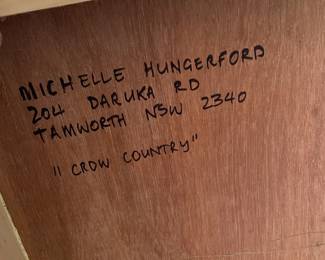 MICHELLE HUNGERFORD
204 DARUKA RD
TAMWORTH NSW 2340
"CROW COUNTRY"